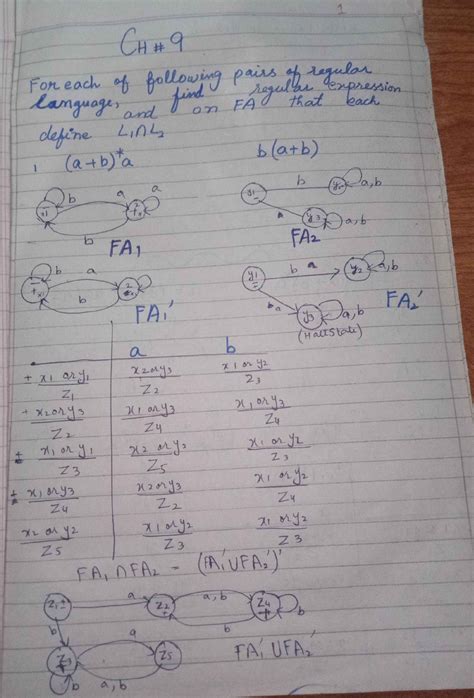 1
CH # 9
For each of following pairs of regular
language, find regular expression
and an FA that each
define L₁∩L₂
1 (a+b)*a b(a+b)
b a a b a,b
b a y3 a,b
FA₁ FA₂
b a y1 b a y2 a,b
b a y3 a,b
FA₁' FA₂'
(Halt State)
a b
+ x1 or y1 / Z1 x2 or y3 / Z2 x1 or y2 / Z3
+ x2 or y3 / Z2 x1 or y3 / Z4
± x1 or y1 / Z3 x2 or / Z5 x1 or / Z3
± x1 or y3 / Z4 x2 or y3 / Z2 / Z4
x2 or y2 / Z5 x1 or y2 / Z3 x1 or y2 / Z3
FA₁∩FA₂ = (FA₁'∪FA₂')'
Z1± a Z2 a,b Z4 b
b b
Z3 a Z5 FA₁'∪FA₂'
b a,b